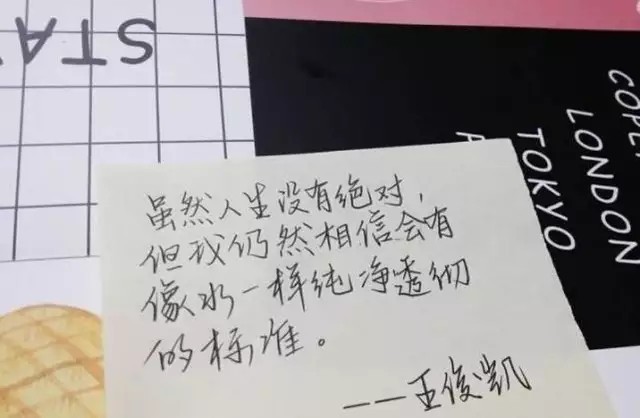 STA
COPE
LONDON
TOKYO
虽然人生没有绝对，
但我仍然相信会有
像水一样纯净透彻
的标准。
——王俊凯